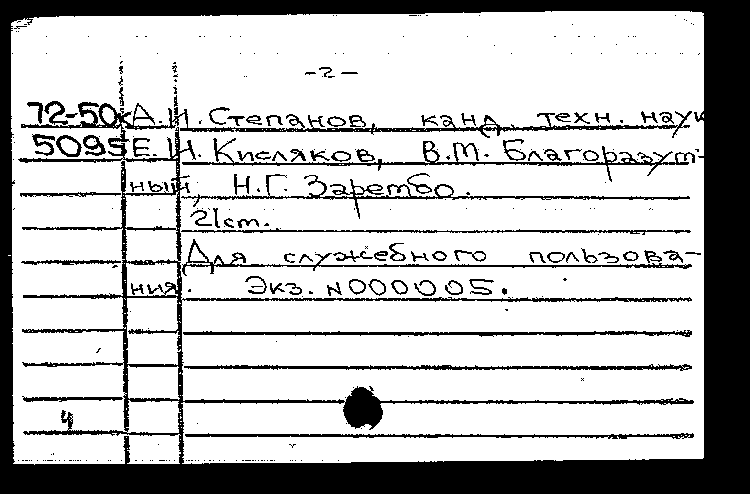 -2-
72-50к А.И. Степанов, канд. техн. наук
5095 Е.И. Кисляков, В.М. Благоразум-
ный, Н.Г. Зарембо.
21 cm.
Для служебного пользова-
ния. Экз. N000005.
4